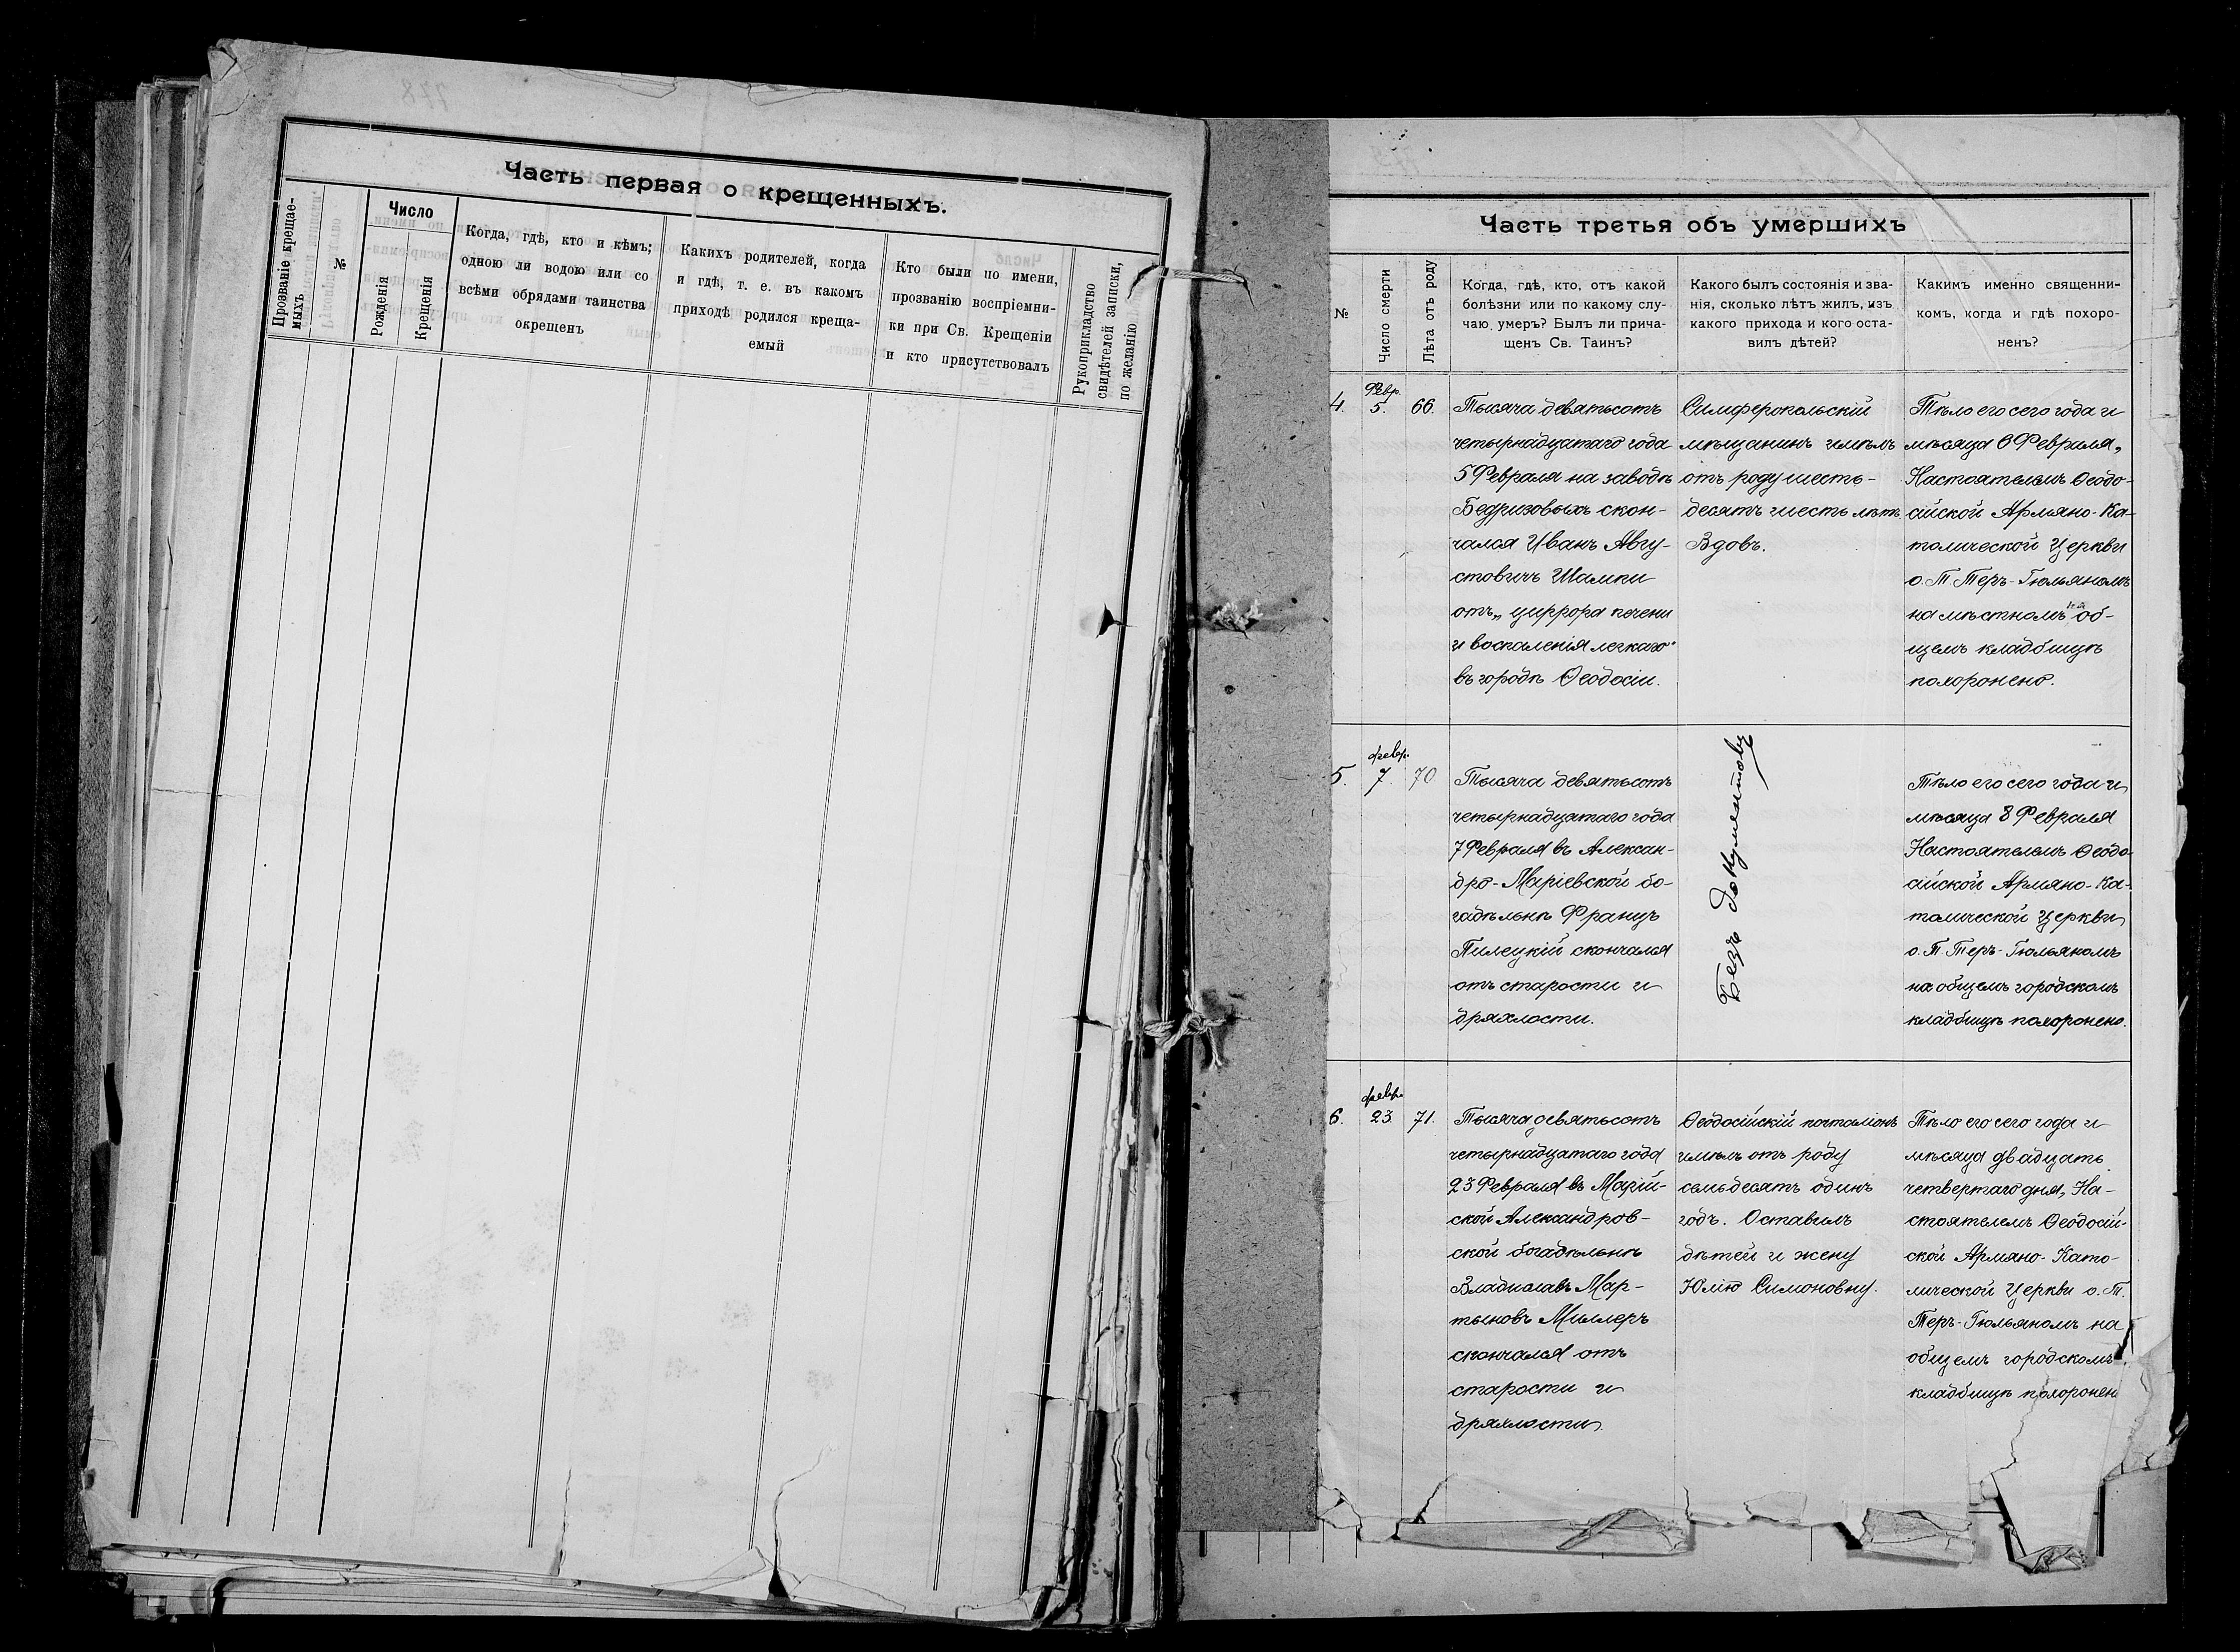 Часть первая о крещенныхъ.
Прозваніе крещае-
мыхъ
№
Число
Рожденія
Крещенія
Когда, гдѣ, кто и кѣмъ;
одною ли водою или со
всѣми обрядами таинства
окрещенъ
Какихъ родителей, когда
и гдѣ, т. е. въ какомъ
приходѣ родился креща-
емый
Кто были по имени,
прозванію воспріемни-
ки при Св. Крещеніи
и кто присутствовалъ
Рукоприкладство
свидѣтелей записки,
по желанію
Часть третья объ умершихъ
№
Число смерти
Лѣта отъ роду
Когда, гдѣ, кто, отъ какой
болѣзни или по какому слу-
чаю умеръ? Былъ ли прича-
щенъ Св. Таинъ?
Какого былъ состоянія и зва-
нія, сколько лѣтъ жилъ, изъ
какого прихода и кого оста-
вилъ дѣтей?
Какимъ именно священни-
комъ, когда и гдѣ похоро-
ненъ?
4.
Февр.
5.
66.
Тысяча девятьсотъ
четырнадцатаго года
5 Февраля на заводѣ
Бедризовыхъ скон-
чался Иванъ Авгу-
стовичъ Шампи
отъ „ циррора печени
и воспаленія легкаго"
въ городѣ Ѳеодосіи.
Симферопольскій
мѣщанинъ имѣлъ
отъ роду шесть-
десятъ шесть лѣтъ.
Вдовъ.
Тѣло его сего года и
мѣсяца 6 Февраля,
Настоятелемъ Ѳеодо-
сійской Армяно-Ка-
толической Церкви
о. Т Теръ-Гюльяномъ
на мѣстномъ об-
щемъ кладбищѣ
похоронено.
5.
февр.
7.
70
Тысяча девятьсотъ
четырнадцатаго года
7 Февраля въ Алексан-
дро-Маріевской бо-
гадѣльнѣ Францъ
Пилецкій скончался
отъ старости и
дряхлости.
Безъ документовъ
Тѣло его сего года и
мѣсяца 8 Февраля
Настоятелемъ Ѳеодо-
сійской Армяно-Ка-
толической Церкви
о. Т. Теръ-Гюльяномъ
на общемъ городскомъ
кладбищѣ похоронено.
6.
февр.
23.
71.
Тысяча девятьсотъ
четырнадцатаго года
23 Февраля въ Марій-
ской Александров-
ской богадѣльнѣ
Владиславъ Мар-
тыновъ Миллеръ
скончался отъ
старости и
дряхлости.
Ѳеодосійскій почталіонъ
имѣлъ отъ роду
семьдесятъ одинъ
годъ. Оставилъ
дѣтей и жену
Юлію Симоновну.
Тѣло его сего года и
мѣсяца двадцать
четвертаго дня, На-
стоятелемъ Ѳеодосій-
ской Армяно-Като-
лической Церкви о. Т.
Теръ-Гюльяномъ на
общемъ городскомъ
кладбищѣ похоронен